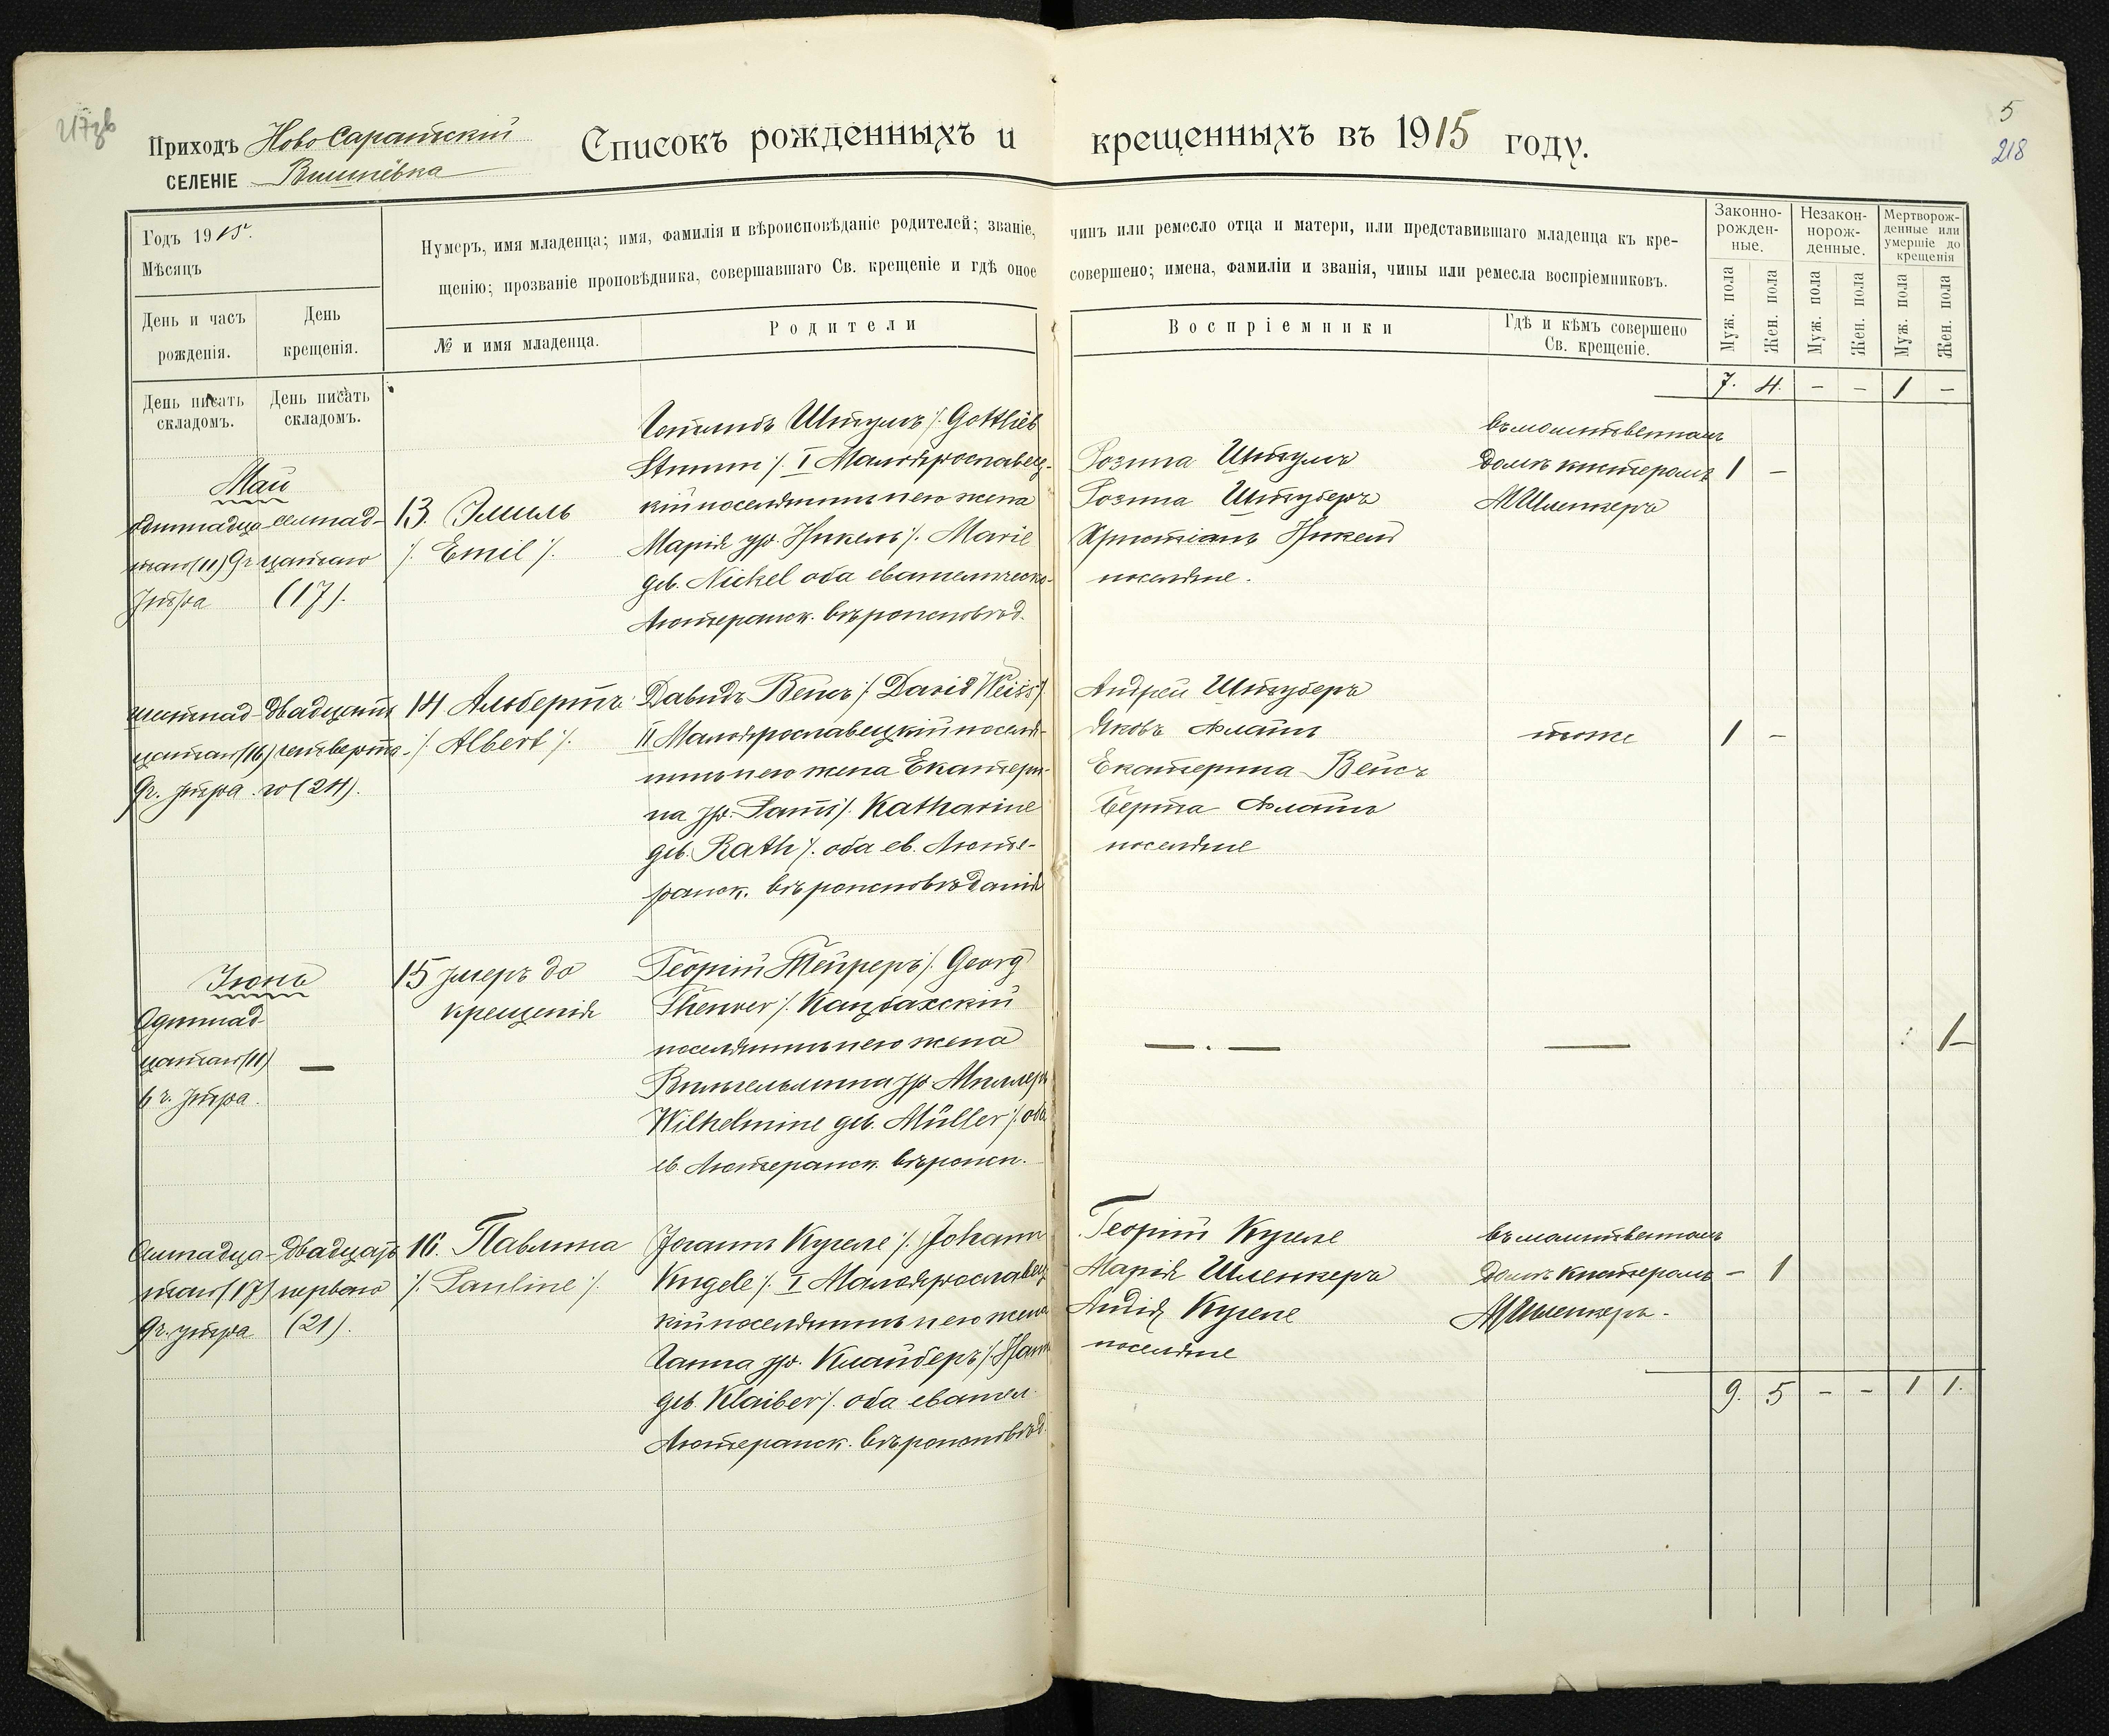 5
218
Приходъ Ново Саратскій
СЕЛЕНІЕ Вишнёвка
Списокъ рожденныхъ и крещенныхъ въ 1915 году.
Годъ 1915г.
Мѣсяцъ
День и часъ рожденія.
День крещенія.
День писать складомъ.
День писать складомъ.
Нумеръ, имя младенца; имя, фамилія и вѣроисповѣданіе родителей; званіе, чинъ или ремесло отца и матери, или представившаго младенца къ кре-
щенію; прозваніе проповѣдника, совершавшаго Св. крещеніе и гдѣ оное совершено; имена, фамиліи и званія, чины или ремесла воспріемниковъ.
№ и имя младенца.
Родители
Воспріемники
Гдѣ и кѣмъ совершено Св. крещеніе.
Законно-рожден-ные.
Незакон-норож-денные.
Мертворож-денные или умершіе до крещенія
Муж. пола
Жен. пола
Муж. пола
Жен. пола
Муж. пола
Жен. пола
7. 4. – – 1 –
Май
одиннадца-
таго (11) 9 ч.
утра
семнад-
цатаго
(17).
13. Эмиль
/. Emil /.
Готлибъ Штумъ /. Gottlieb
Stumm /. I Малоярославец-
кій поселянинъ и его жена
Марія ур. Никель /. Marie
geb. Nickel оба евангелическо-
Лютеранск. вѣроисповѣд.
Розина Штумъ
Розина Штуберъ
Христіанъ Никель
поселяне.
въ молитвенномъ
домѣ кистеромъ
Шленкеръ
1 –
шестнад-
цатаго (16)
9 ч. утра
двадцать
четверта-
го (24).
14 Альбертъ
/. Albert /.
Давидъ Вейсъ /. David Weiss /.
II Малоярославецкій поселя-
нинъ и его жена Екатери-
на ур. Ратъ /. Katharine
geb. Rath /. оба ев. Люте-
ранск. вѣроисповѣданія
Андрей Штуберъ
Яковъ Флайгъ
Екатерина Вейсъ
Берта Флайгъ
поселяне
тоже
1 –
Іюнь
Одиннад-
цатаго (11)
6 ч. утра.
—
15 умеръ до
крещенія
Георгій Тейреръ /. Georg
Theurer /. Кацбахскій
поселянинъ и его жена
Вильгельмина ур Миллеръ
Wilhelmine geb. Müller /. оба
ев. Лютеранск. вѣроисп.
— . —
—
1
Семнадца-
таго (17)
9 ч. утра
двадцать
перваго
(21).
16. Павлина
/. Pauline /.
Іоганнъ Кугеле /. Johann
Kugele /. I Малоярославец
кій поселянинъ и его жена
Ганна ур. Клайберъ /. Hann
geb. Klaiber /. оба евангел.
Лютеранск. вѣроисповѣд.
Георгій Кугеле
Марія Шленкеръ
Лидія Кугеле
поселяне
въ молитвенномъ
домѣ кистеромъ
Шленкеръ.
– 1
9. 5 – – 1 1.